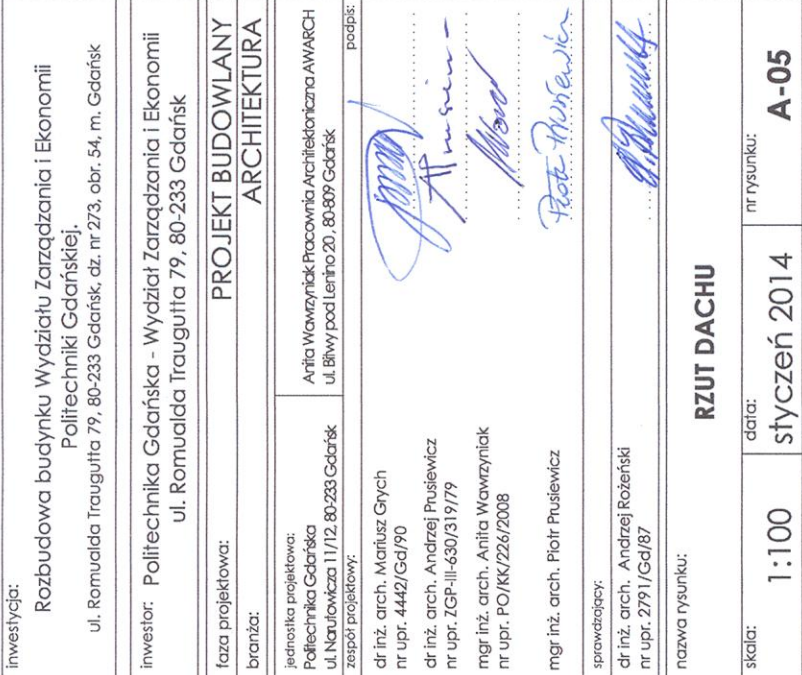 inwestycja:
Rozbudowa budynku Wydziału Zarządzania i Ekonomii
Politechniki Gdańskiej.
ul. Romualda Traugutta 79, 80-233 Gdańsk, dz. nr 273, obr. 54, m. Gdańsk
inwestor: Politechnika Gdańska - Wydział Zarządzania i Ekonomii
ul. Romualda Traugutta 79, 80-233 Gdańsk
faza projektowa: PROJEKT BUDOWLANY
branża: ARCHITEKTURA
jednostka projektowa:
Politechnika Gdańska
ul. Narutowicza 11/12, 80-233 Gdańsk
Anita Wawrzyniak Pracownia Architektoniczna AWARCH
ul. Bitwy pod Lenino 20, 80-809 Gdańsk
zespół projektowy: podpis:
dr inż. arch. Mariusz Grych
nr upr. 4442/Gd/90
dr inż. arch. Andrzej Prusiewicz
nr upr. ZGP-III-630/319/79
mgr inż. arch. Anita Wawrzyniak
nr upr. PO/KK/226/2008
mgr inż. arch. Piotr Prusiewicz Piotr Prusiewicz
sprawdzający:
dr inż. arch. Andrzej Rożeński
nr upr. 2791/Gd/87
nazwa rysunku:
RZUT DACHU
skala: data: nr rysunku:
1:100 styczeń 2014 A-05